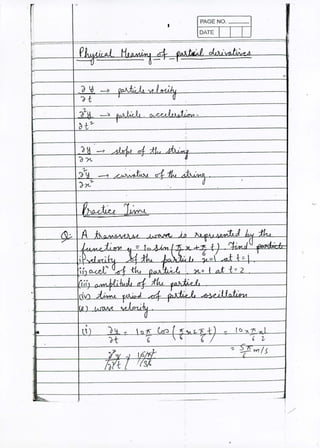 PAGE NO.
DATE
Physical Meaning of partial derivatives
∂y/∂t → particle velocity
∂²y/∂t² → particle acceleration.
∂y/∂x → slope of the string
∂²y/∂x² → curvature of the string.
Practice Time
Q: A transverse wave is represented by the
function y = 10 sin(π/6 x + π/6 t). Find particle
i) velocity of the particle x=1 at t=1.
ii) accelⁿ of the particle x=1 at t=2.
(iii) amplitude of the particle
(iv) time period of particle oscillation
(v) wave velocity.
(i) ∂y/∂t = 10π/6 Cos(π/6 x + π/6 t) = 10×π/6 × 1/2
= 5π/6 m/s